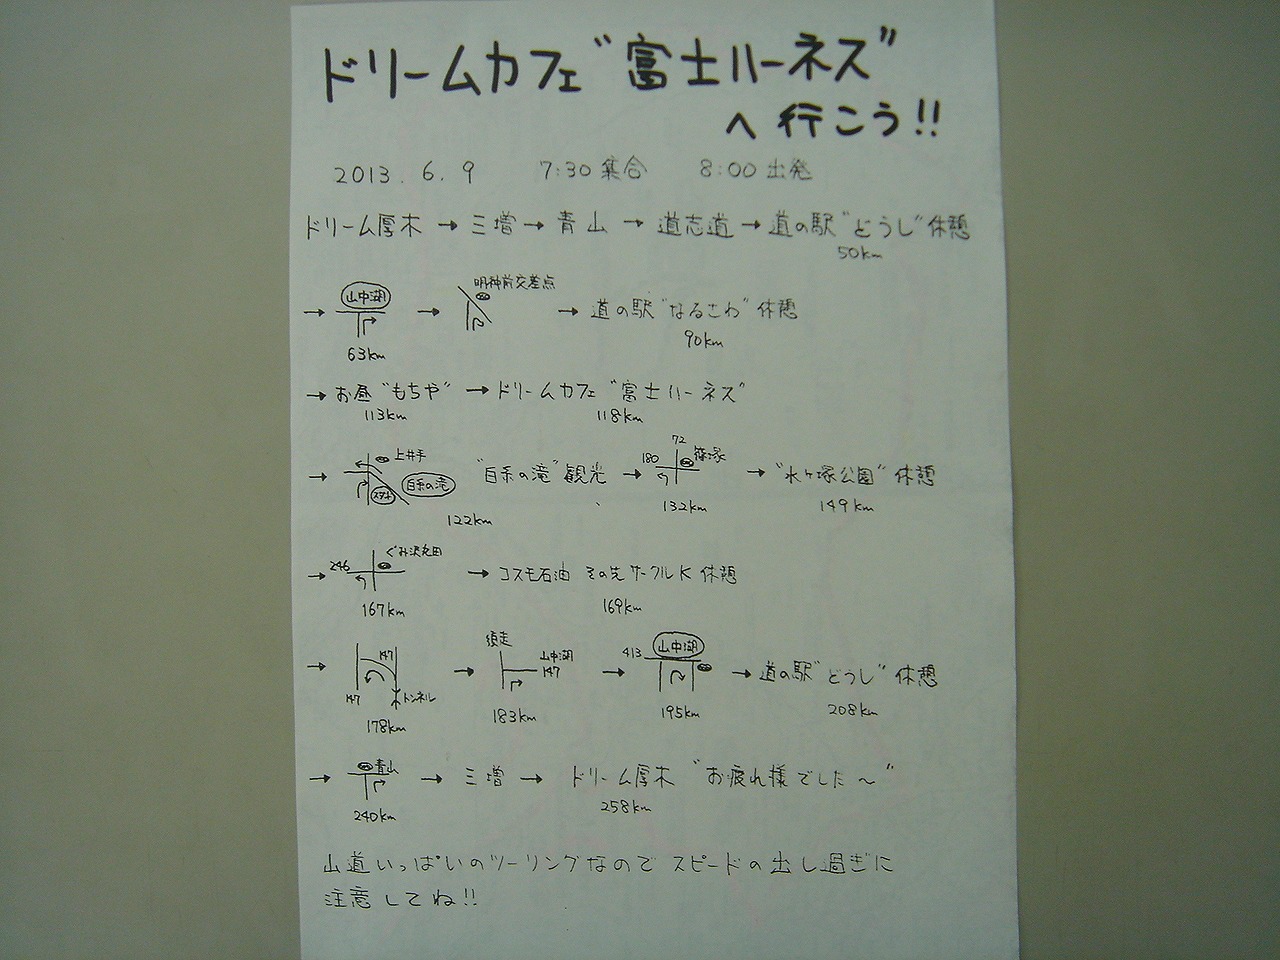 ドリームカフェ"富士ハーネス"
へ行こう!!
2013.6.9 7:30集合 8:00出発
ドリーム厚木→三増→青山→道志道→道の駅"どうし"休憩
50km
→ 山中湖 → 明神前交差点 → 道の駅"なるさわ"休憩
63km 90km
→お昼"もちや"→ドリームカフェ"富士ハーネス"
113km 118km
→ 上井手 スタンド 白糸の滝 "白糸の滝"観光 → 180 72 篠塚 → "水ヶ塚公園"休憩
122km 132km 149km
→ 246 ぐみ沢丸田 → コスモ石油 その先サークルK 休憩
167km 169km
→ 147 147 トンネル → 須走 山中湖 147 → 413 山中湖 → 道の駅"どうし"休憩
178km 183km 195km 208km
→ 青山 → 三増 → ドリーム厚木 "お疲れ様でした～"
240km 258km
山道いっぱいのツーリングなので スピードの出し過ぎに
注意してね!!